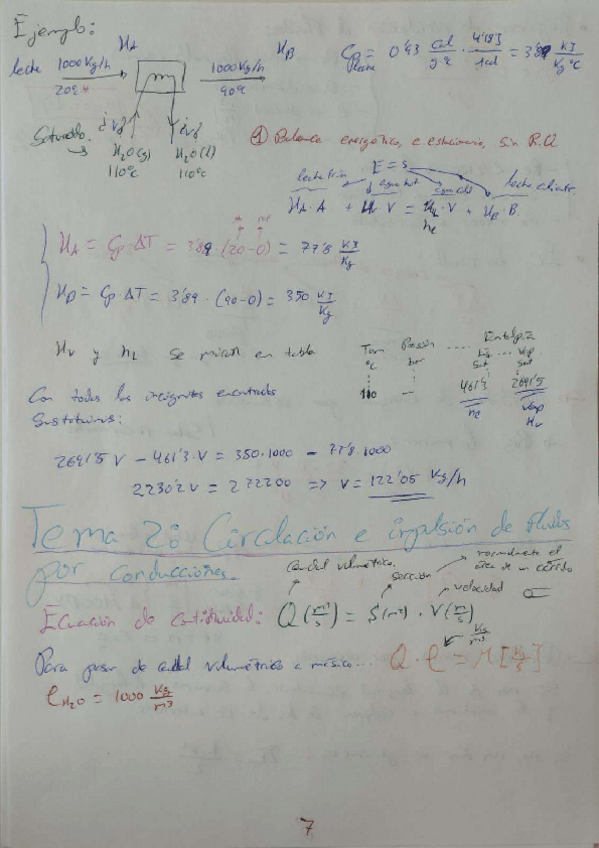 Ejemplo:
H_A H_B
leche 1000 Kg/h 1000 Kg/h
20ºc 90ºc
Cp leche = 0'93 cal/g ºc · 4'18J/1cal = 3'89 KJ/Kg ºC
Saturado. → H₂O(g) H₂O(l)
110ºc 110ºc
① Balance energético, e. estacionario, sin R.Q
E = S
leche fría agua cal leche caliente
H_A · A + H_v · V = h_L · V + H_B · B.
H_A = Cp · ΔT = 3'89 · (20-0) = 77'8 KJ/Kg
H_B = Cp · ΔT = 3'89 · (90-0) = 350 KJ/Kg
H_v y h_L se miran en tabla
Tem Presión .... Entalpía
ºc bar Liq Sat Vap Sat
110 — 461'3 2691'5
h_L vap H_v
Con todas las incógnitas encontradas
Sustituimos:
2691'5 V - 461'3 · V = 350 · 1000 - 77'8 · 1000
2230'2 V = 272200 => V = 122'05 Kg/h
Tema 2: Circulación e impulsión de fluidos
por conducciones.
caudal volumétrico. sección normalmente el
área de un círculo
velocidad
Ecuación de continuidad: Q (m³/s) = S (m²) · V (m/s)
Para pasar de caudal volumétrico a másico... Q · ρ = M [Kg/s]
Kg/m³
ρ H₂O = 1000 Kg/m³
7